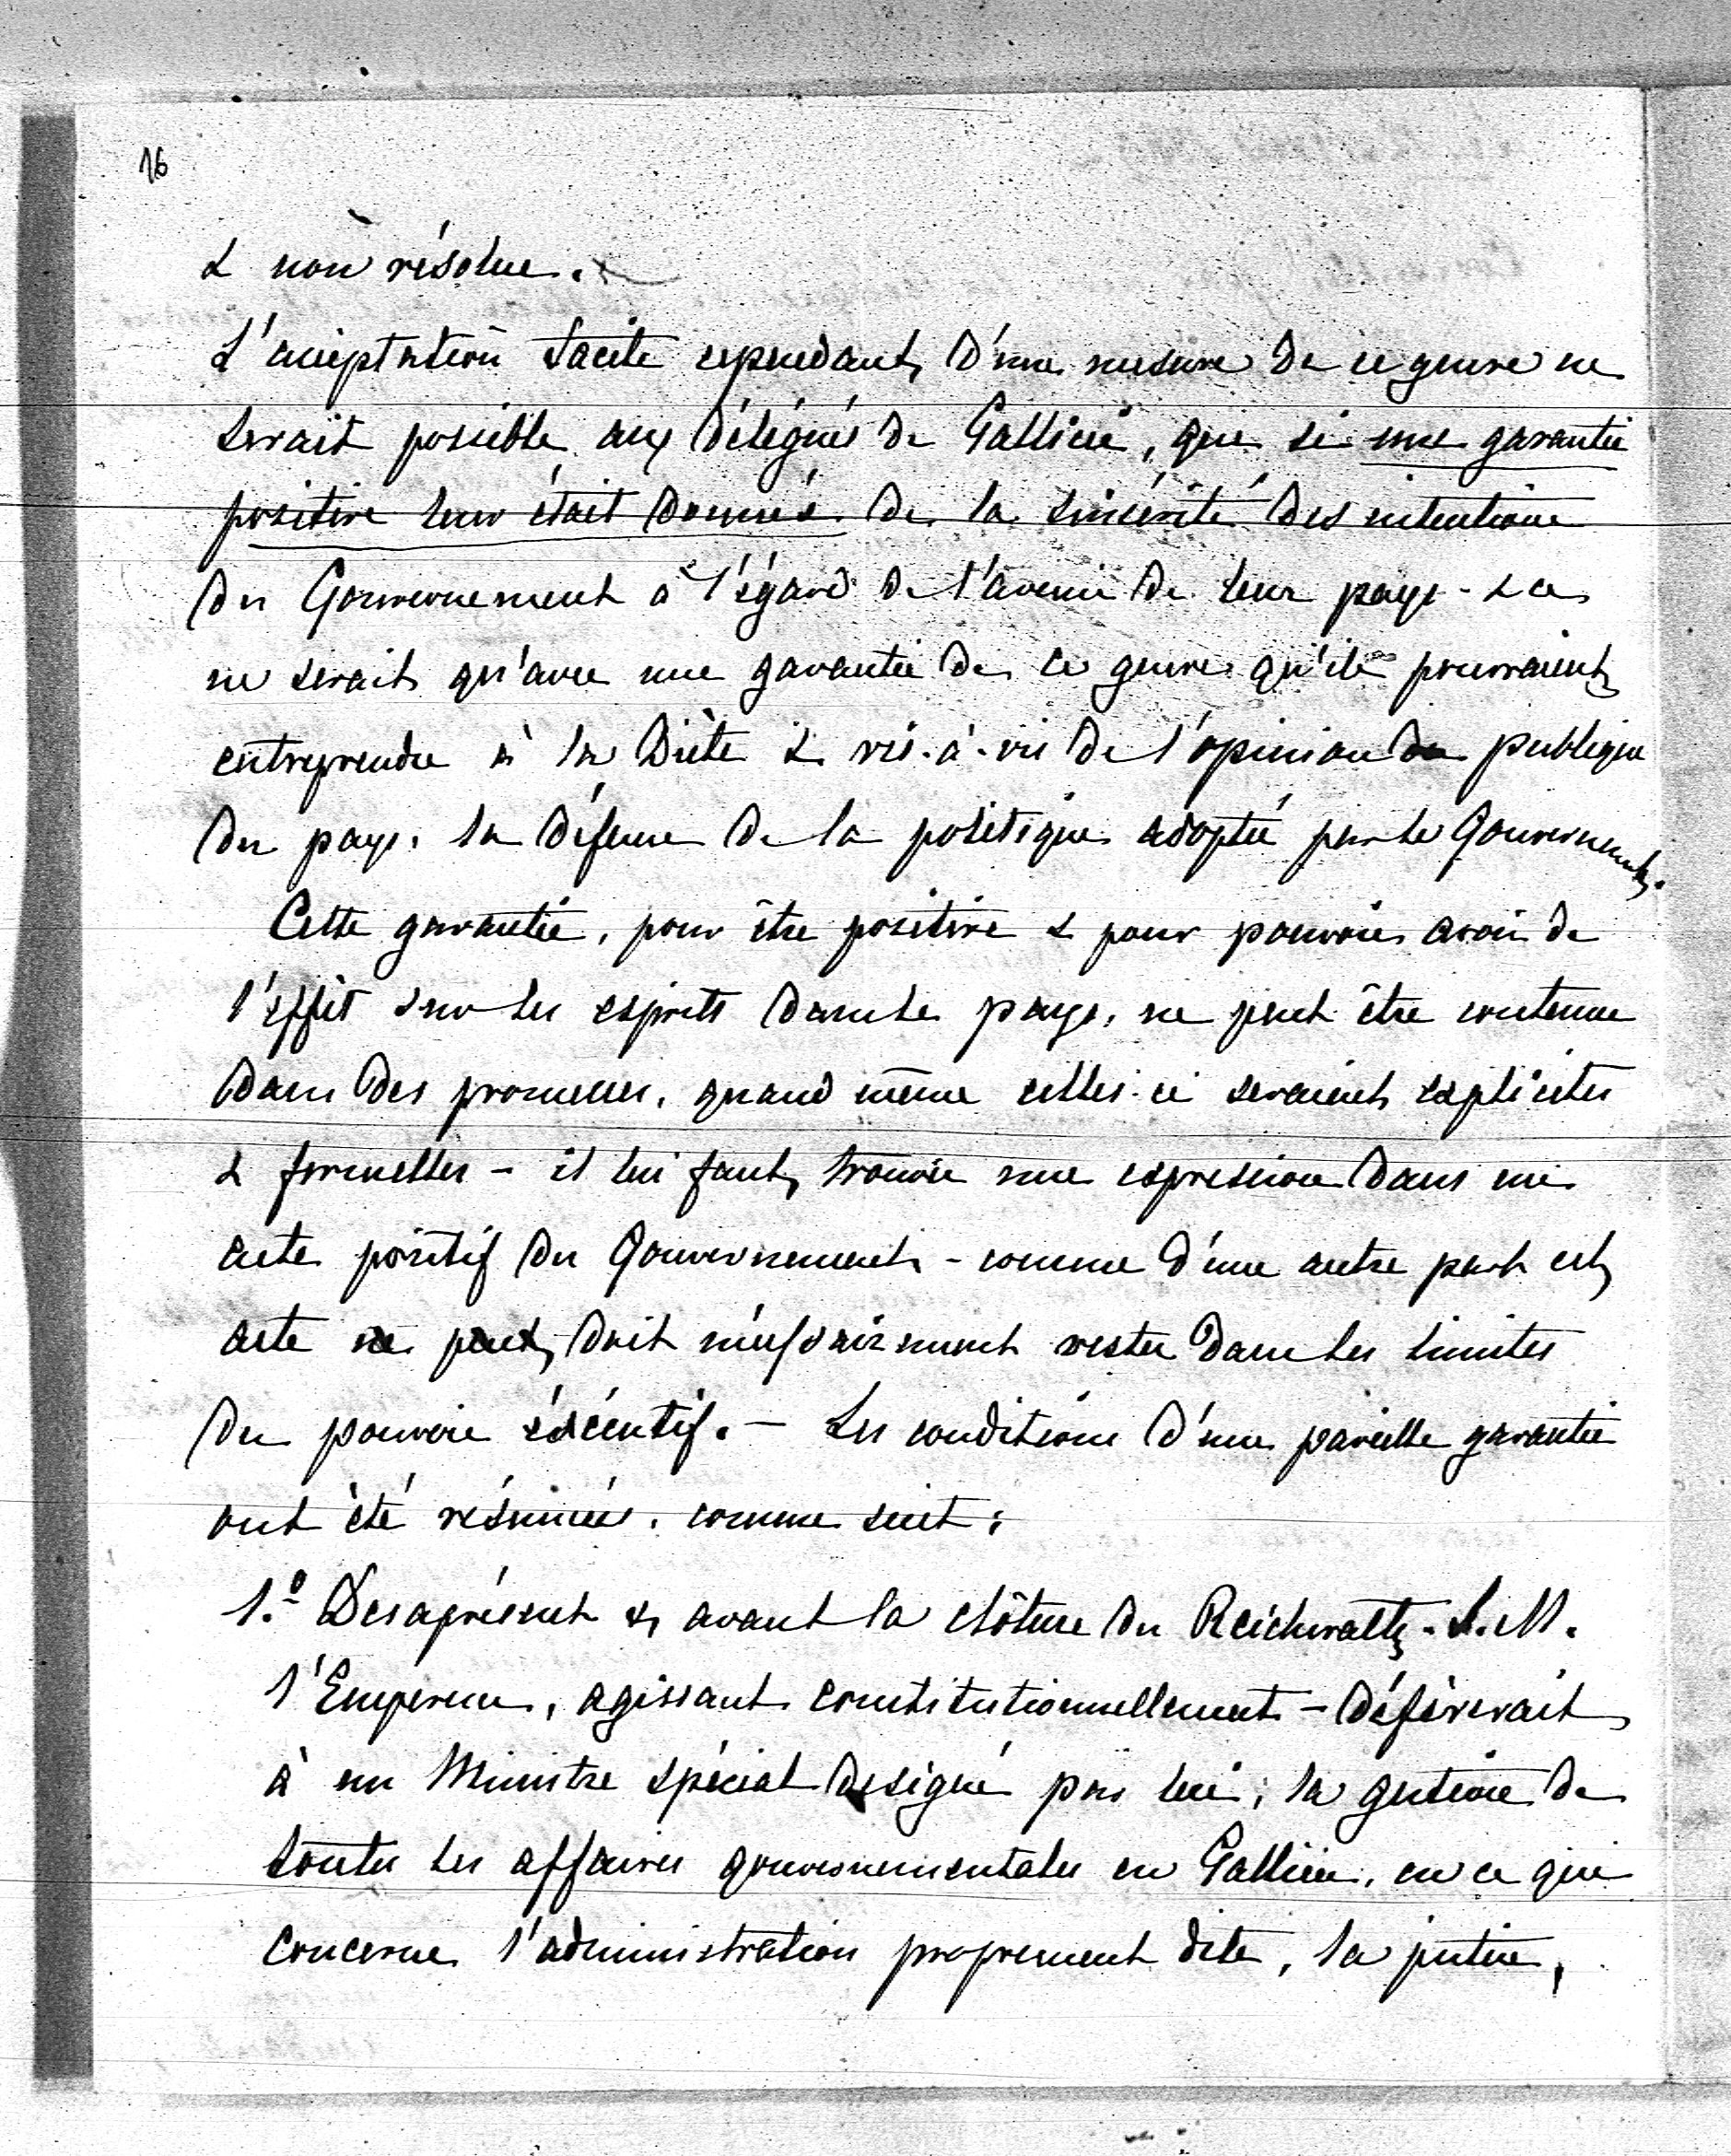 16
& non résolue.
L'acceptation tacite cependant d'une mesure de ce genre ne
serait possible aux délégués de Gallicie, que si une garantie
positive leur était donnée de la sincérité des intentions
du Gouvernement à l'égard de l'avenir de leur pays - & ce
ne serait qu'avec une garantie de ce genre qu'ils pourraient
entreprendre à la Diète & vis-à-vis de l'opinion publique
du pays, la défense de la politique adoptée par le Gouvernement.
Cette garantie, pour être positive & pour pouvoir avoir de
l'effet sur les esprits dans le pays, ne peut être contenue
dans des promesses, quand même celles-ci seraient explicites
& formelles - il lui faut trouver une expression dans un
acte positif du Gouvernement - comme d'une autre part cet
acte ne peut, doit nécessairement rester dans les limites
du pouvoir éxécutif. - Les conditions d'une pareille garantie
ont été résumées, comme suit:
1.º Desaprésent & avant la clôture du Reichsrath - S. M.
l'Empereur, agissant constitutionnellement - déférerait
à un Ministre spécial designé par lui, la gestion de
toutes les affaires gouvernementales en Gallicie, en ce qui
concerne l'administration proprement dite, la justice,